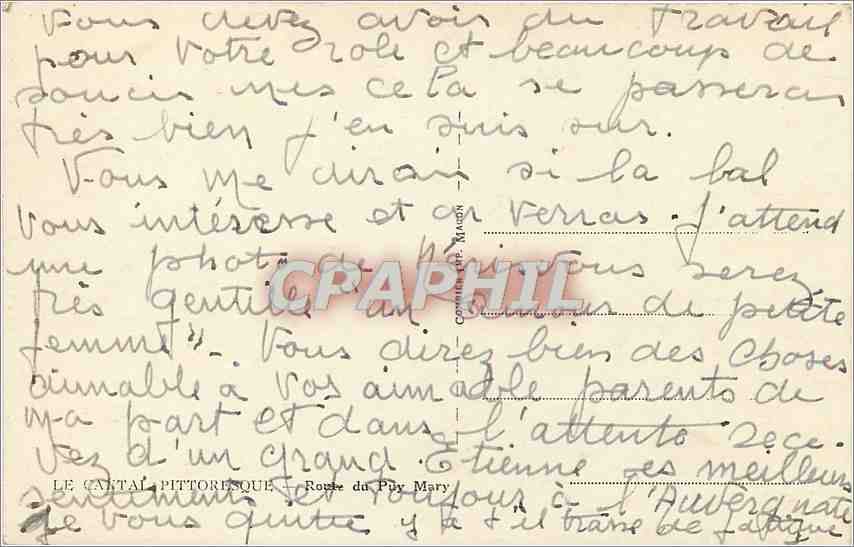 Vous devez avoir du travail
pour votre role et beaucoup de
soucis mes cela se passeras
très bien j'en suis sur.
Vous me dirais si la bal
vous intéresse et on verras. J'attend
une photo de vous serez
très gentille un de petite
femme". Vous direz bien des choses
aimable à vos aimable parents de
ma part et dans l'attente rece-
vez d'un grand Etienne ses meilleurs
sentiments et toujour à l'Auvergnate
je vous quitte y a t'il de fatigue
LE CANTAL PITTORESQUE — Route du Puy Mary
COMBIER IMP. MACON
CPAPHIL